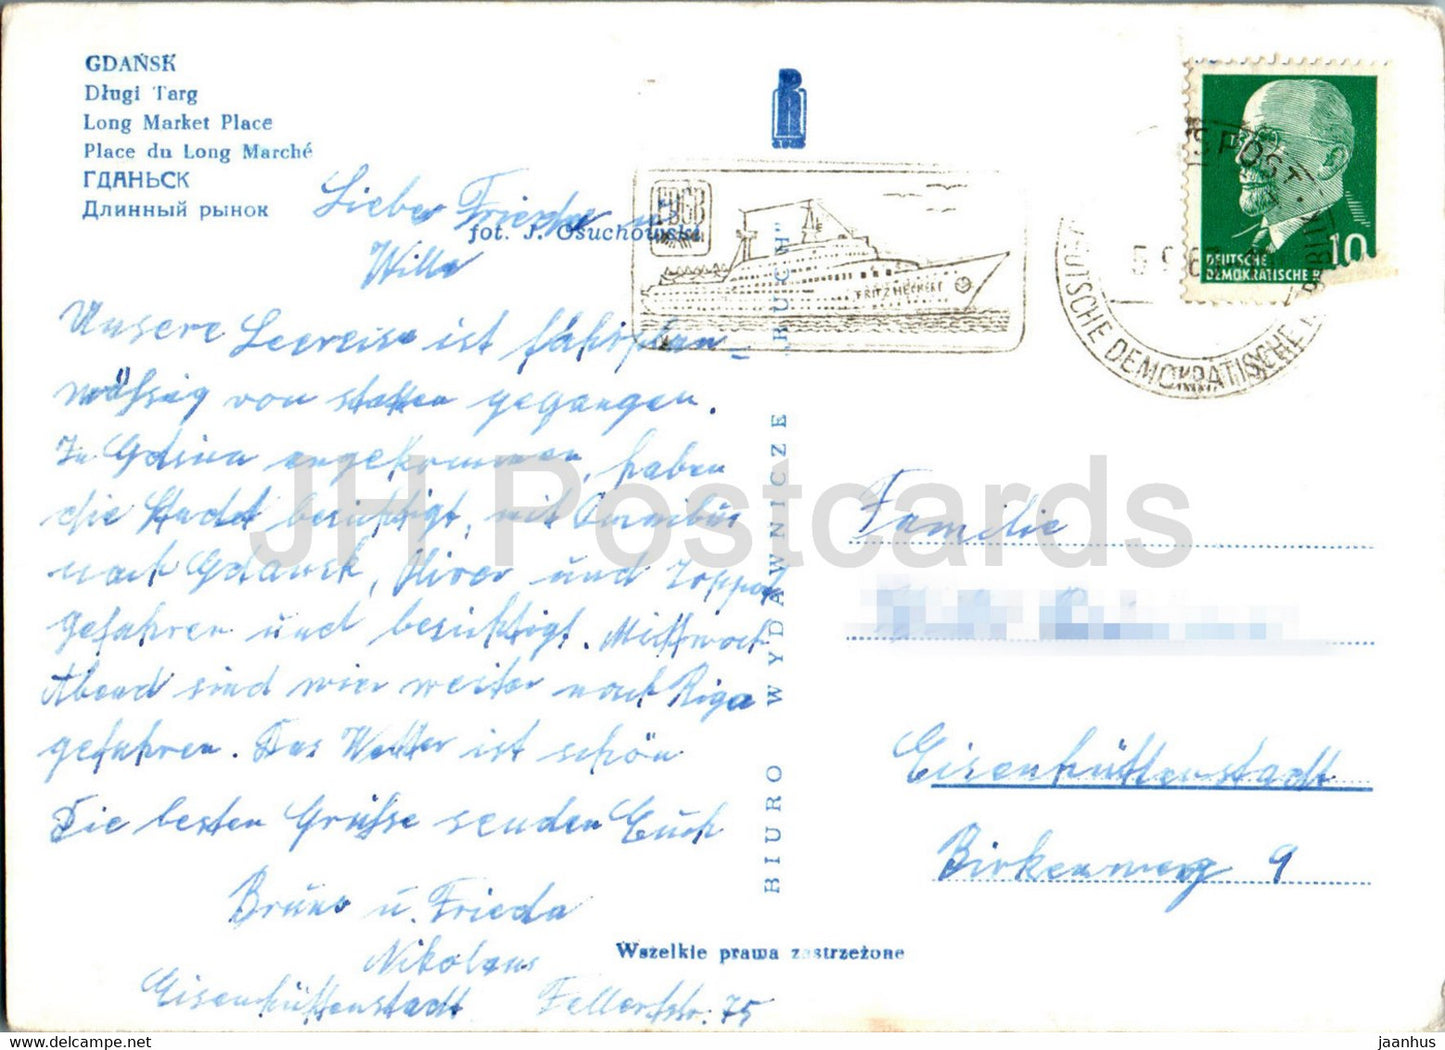 GDAŃSK
Długi Targ
Long Market Place
Place du Long Marché
ГДАНЬСК
Длинный рынок
fot. J. Osuchowski
RUCH
FDGB
FRITZ HECKERT
5.9.6
DEUTSCHE DEMOKRATISCHE
DEUTSCHE
DEMOKRATISCHE R
10
Lieber Frieda und
Willi
Unsere Seereise ist fahrplan-
mäßig von statten gegangen.
In Gdina angekommen, haben
die Stadt besichtigt, mit Omnibus
nach Gdansk, Oliver und Zoppot
gefahren und besichtigt. Mittwoch
Abend sind wir weiter nach Riga
gefahren. Das Wetter ist schön
Die besten Grüße senden Euch
Bruno u. Frieda
Nikolaus
Eisenhüttenstadt 75
BIURO WYDAWNICZE „RUCH”
Wszelkie prawa zastrzeżone
Familie
Eisenhüttenstadt
Birkenweg 9
JH Postcards
jaanhus